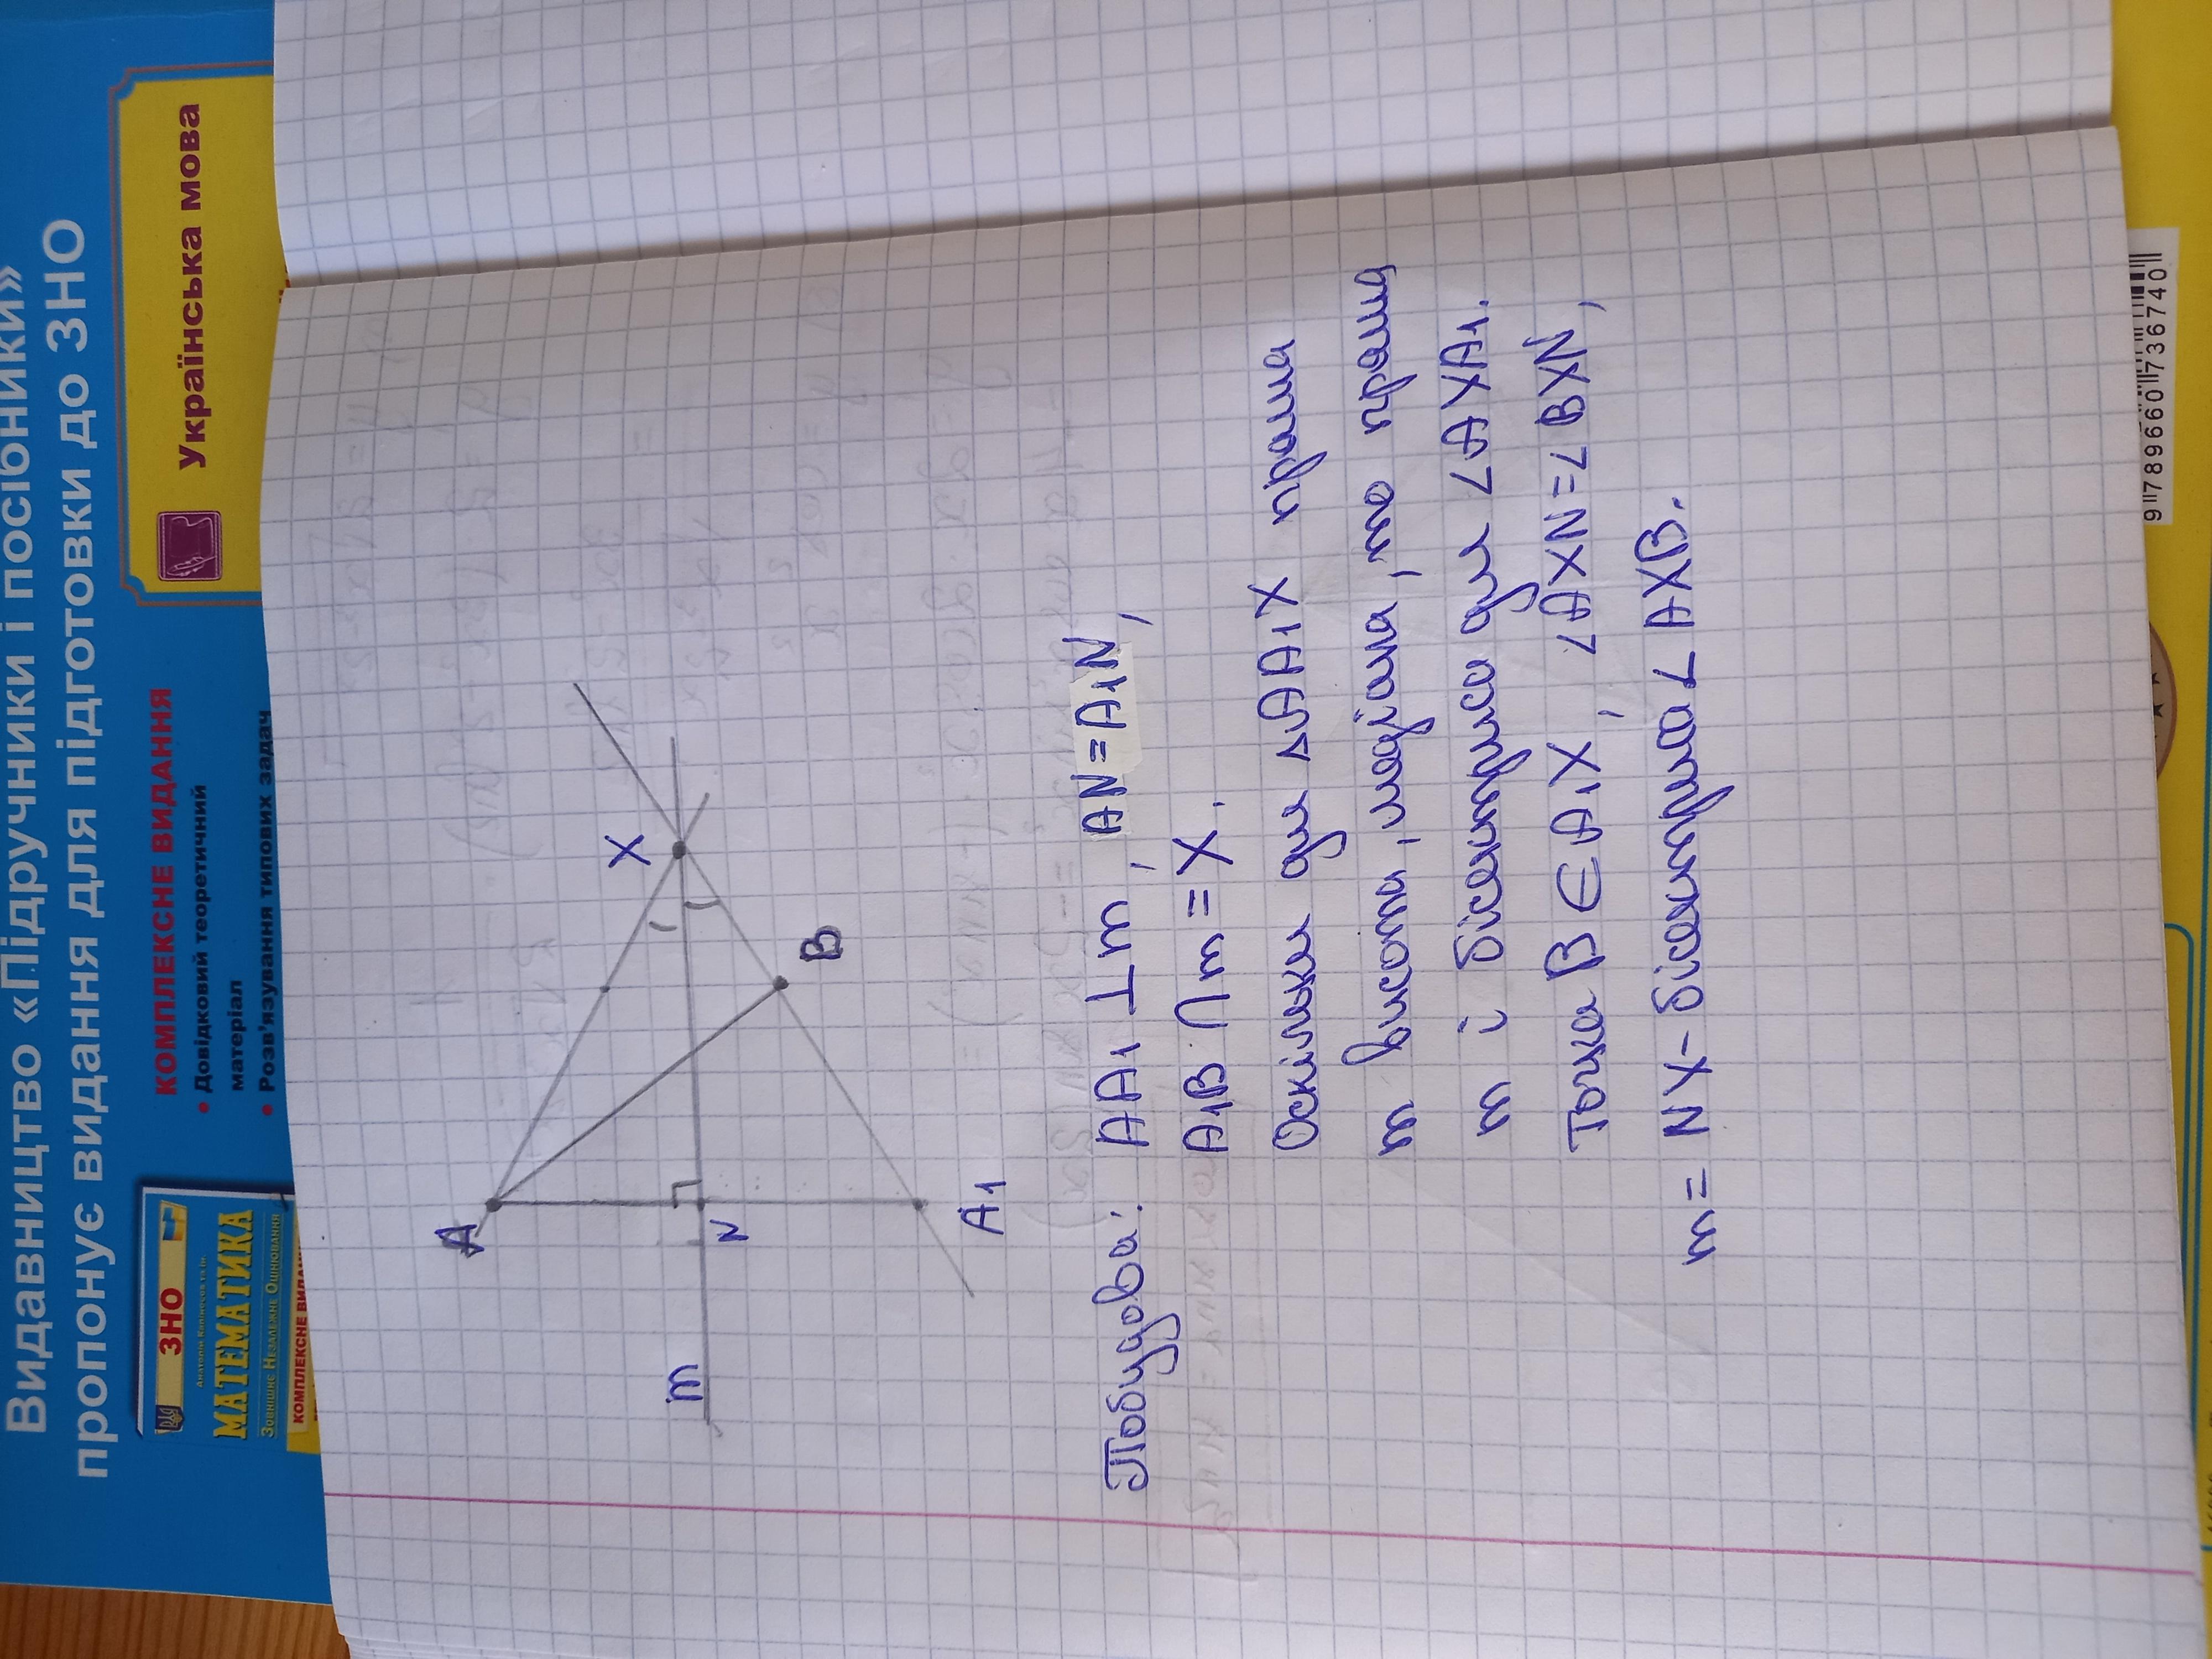 Видавництво «Підручники і посібники»
пропонує видання для підготовки до ЗНО
ЗНО
МАТЕМАТИКА
Зовнішнє Незалежне Оцінювання
КОМПЛЕКСНЕ ВИДАННЯ
• Довідковий теоретичний
матеріал
• Розв'язування типових задач
Українська мова
A
X
B
m
N
A1
Побудова: AA1 ⊥ m, AN = A1N,
A1B ∩ m = X.
Оскільки для △AA1X пряма
m висота, медіана, то пряма
m і бісектриса для ∠AXA1.
Точка B ∈ A1X, ∠AXN = ∠BXN,
m = NX - бісектриса ∠AXB.
9 789660 736740